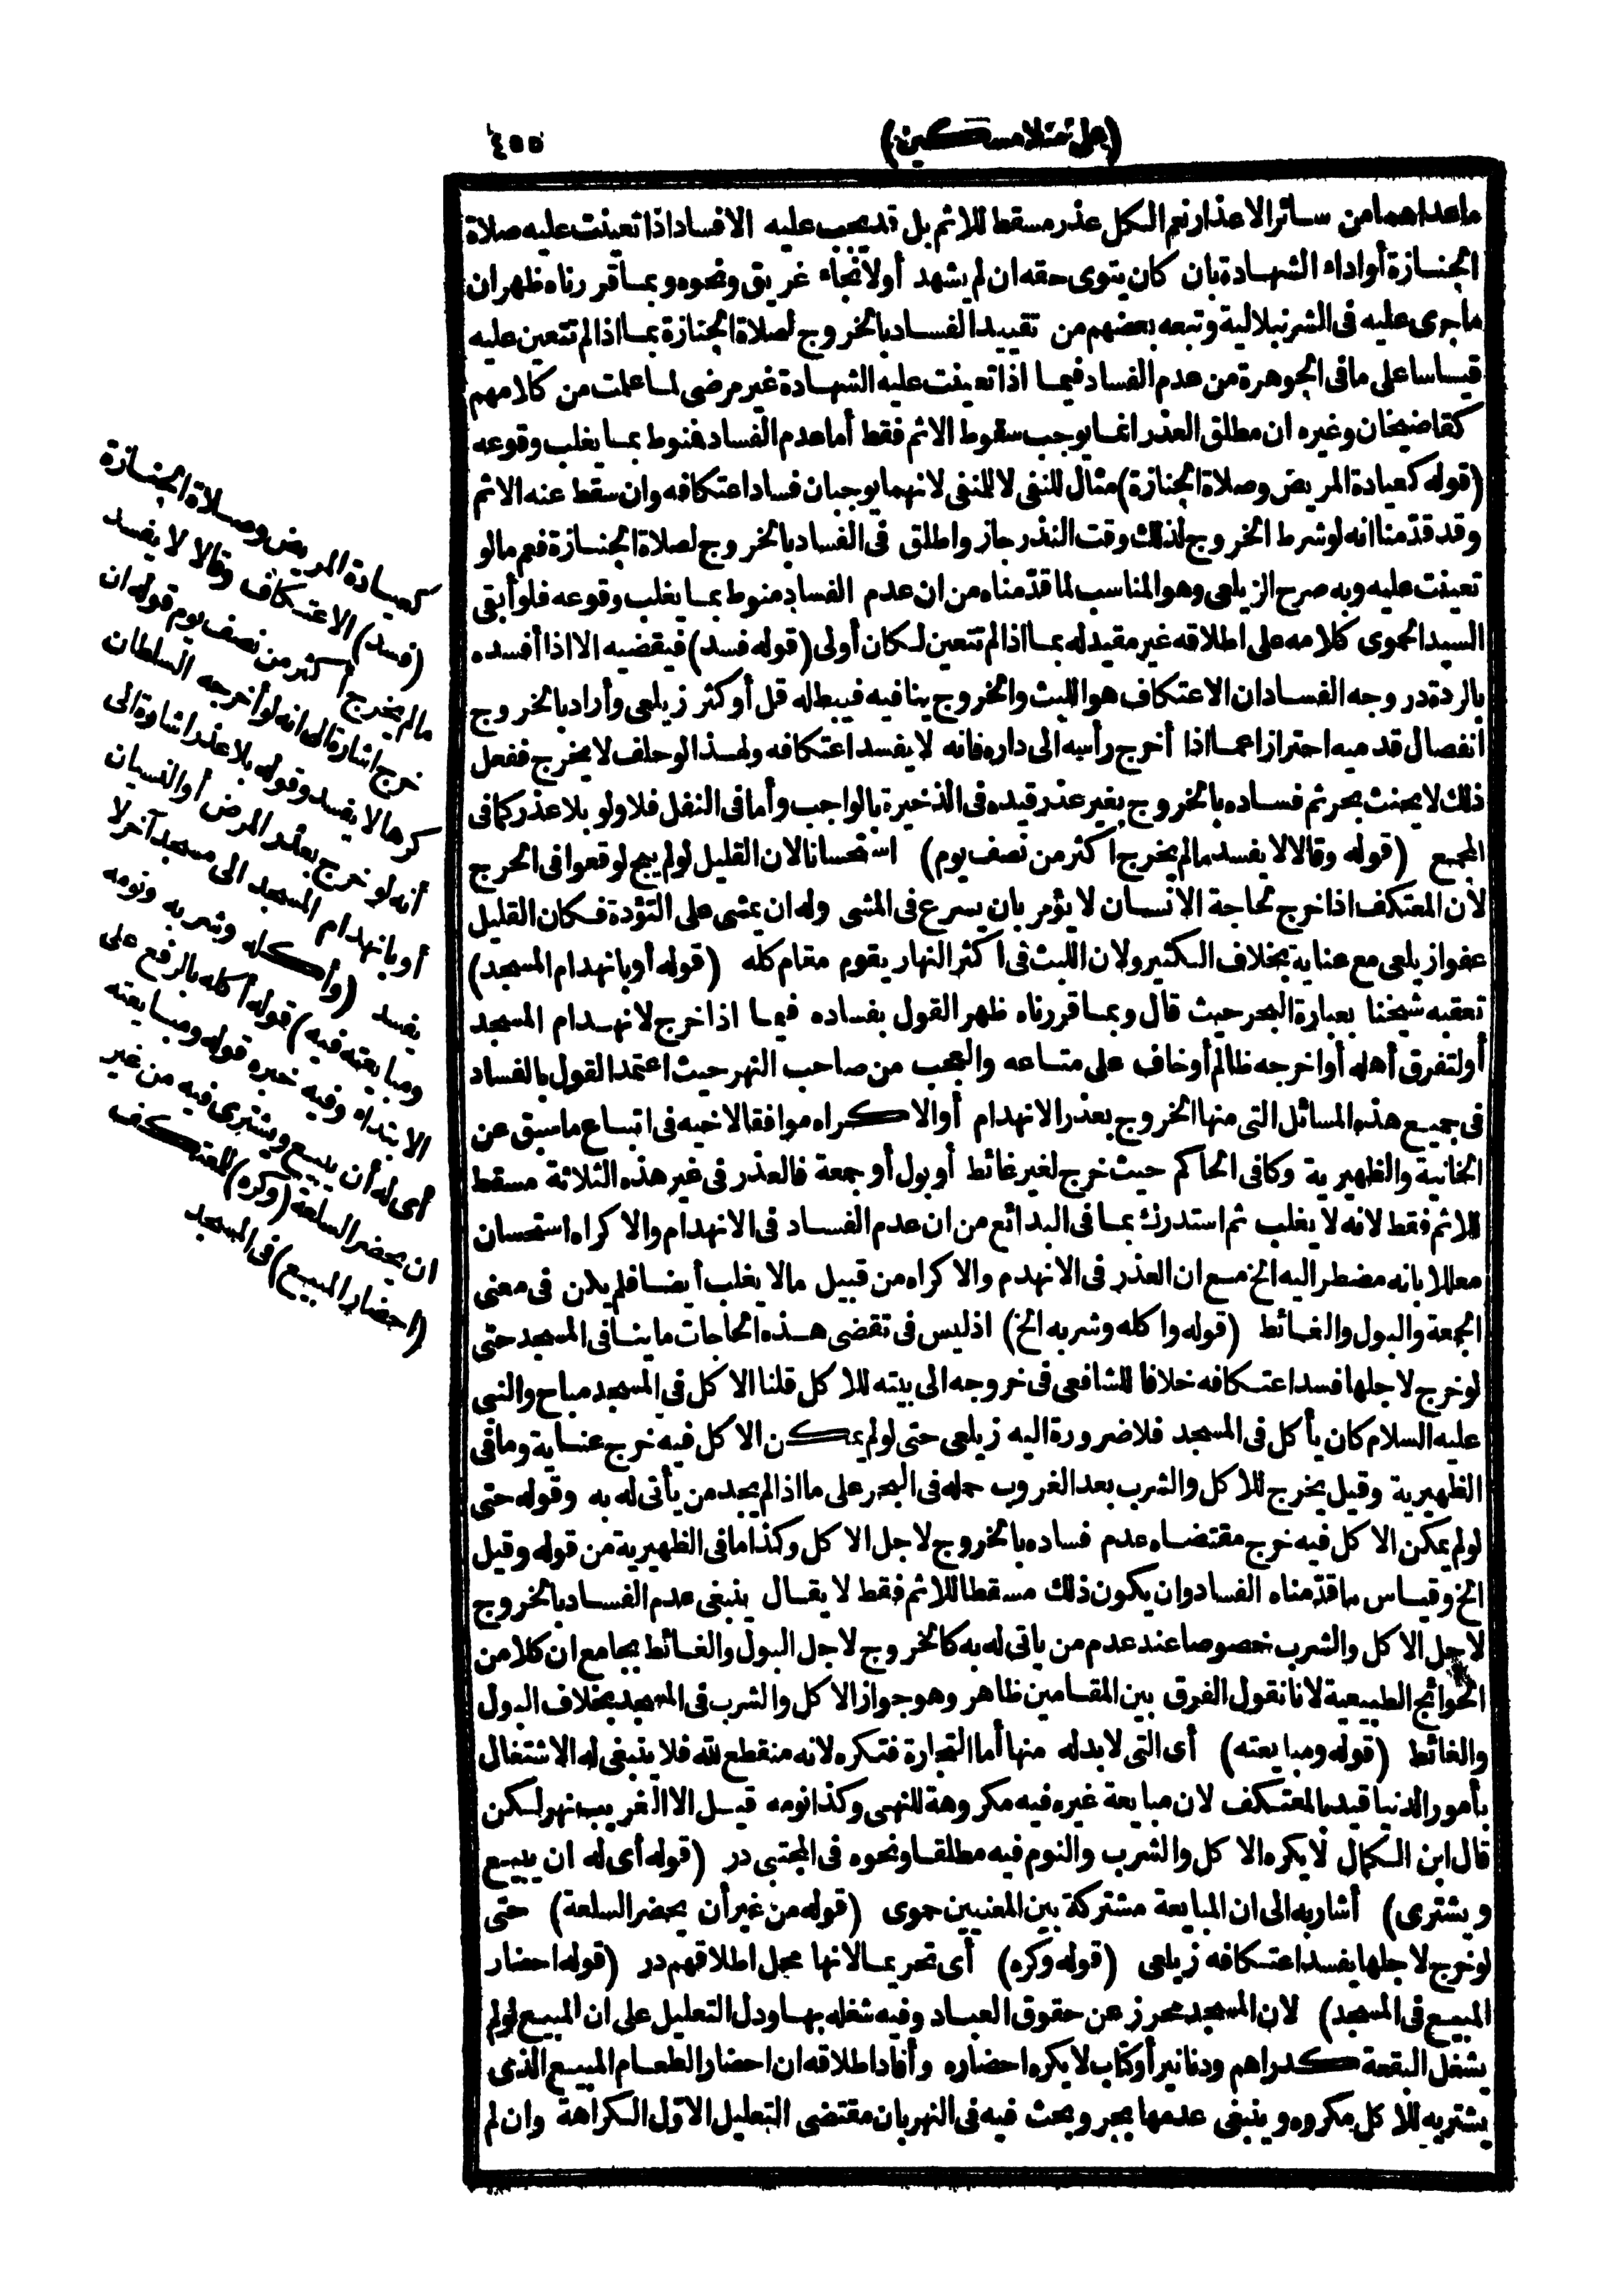 (على منلا مسكين)
٤٥٥
ما عداهما من سائر الاعذار نعم الكل عذر مسقط للاثم بل قد يجب عليه الافساد اذا تعينت عليه صلاة
الجنازة أو اداء الشهادة بان كان يتوى حقه ان لم يشهد أو لانجاء غريق ونحوه وبما قررناه ظهر ان
ما جرى عليه فى الشرنبلالية وتبعه بعضهم من تقييد الفساد بالخروج لصلاة الجنازة بما اذا لم تتعين عليه
قياسا على ما فى الجوهرة من عدم الفساد فيما اذا تعينت عليه الشهادة غير مرضى لما علمت من كلامهم
كقاضيخان وغيره ان مطلق العذر انما يوجب سقوط الاثم فقط أما عدم الفساد فنوط بما يغلب وقوعه
(قوله كعيادة المريض وصلاة الجنازة) مثال للنفى لا للمنفى لانهما يوجبان فساد اعتكافه وان سقط عنه الاثم
وقد قدّمنا انه لو شرط الخروج لذلك وقت النذر جاز واطلق فى الفساد بالخروج لصلاة الجنازة فعم ما لو
تعينت عليه وبه صرح الزيلعى وهو المناسب لما قدّمناه من ان عدم الفساد منوط بما يغلب وقوعه فلو أبقى
السيد الحموى كلامه على اطلاقه غير مقيد له بما اذا لم تتعين لكان أولى (قوله فسد) فيقضيه الا اذا أفسده
بالردة در وجه الفساد ان الاعتكاف هو اللبث والخروج ينافيه فيبطله قل أو كثر زيلعى وأراد بالخروج
انفصال قدميه احترازا عما اذا أخرج رأسه الى داره فانه لا يفسد اعتكافه ولهذا لو حلف لا يخرج ففعل
ذلك لا يحنث بحر ثم فساده بالخروج بغير عذر قيده فى الذخيرة بالواجب وأما فى النفل فلا ولو بلا عذر كما فى
المجمع (قوله وقالا لا يفسد مالم يخرج اكثر من نصف يوم) استحسانا لان القليل لو لم يبح لوقعوا فى الحرج
لان المعتكف اذا خرج لحاجة الانسان لا يؤمر بان يسرع فى المشى وله ان يمشى على التؤدة فكان القليل
عفوا زيلعى مع عناية بخلاف الكثير ولان اللبث فى أكثر النهار يقوم مقام كله (قوله أو بانهدام المسجد)
تعقبه شيخنا بعبارة البحر حيث قال وبما قررناه ظهر القول بفساده فيما اذا خرج لانهدام المسجد
أو لتفرق أهله أو اخرجه ظالم أو خاف على متاعه والعجب من صاحب النهر حيث اعتمد القول بالفساد
فى جميع هذه المسائل التى منها الخروج بعذر الانهدام أو الاكراه موافقا لاخيه فى اتباع ما سبق عن
الخانية والظهيرية وكافى الحاكم حيث خرج لغير غائط أو بول أو جمعة فالعذر فى غير هذه الثلاثة مسقط
للاثم فقط لانه لا يغلب ثم استدرك بما فى البدائع من ان عدم الفساد فى الانهدام والاكراه استحسان
معللا بانه مضطر اليه الخ مع ان العذر فى الانهدم والاكراه من قبيل مالا يغلب أيضا فلم يكن فى معنى
الجمعة والبول والغائط (قوله واكله وشربه الخ) اذ ليس فى تقضى هذه الحاجات ما ينافى المسجد حتى
لو خرج لاجلها فسد اعتكافه خلافا للشافعى فى خروجه الى بيته للاكل قلنا الاكل فى المسجد مباح والنبى
عليه السلام كان يأكل فى المسجد فلا ضرورة اليه زيلعى حتى لو لم يمكن الاكل فيه خرج عناية وما فى
الظهيرية وقيل يخرج للاكل والشرب بعد الغروب حمله فى البحر على ما اذا لم يجد من يأتى له به وقوله حتى
لو لم يمكن الاكل فيه خرج مقتضاه عدم فساده بالخروج لاجل الاكل وكذا ما فى الظهيرية من قوله وقيل
الخ وقياس ما قدّمناه الفساد وان يكون ذلك مسقطا للاثم فقط لا يقال ينبغى عدم الفساد بالخروج
لاجل الاكل والشرب خصوصا عند عدم من ياتى له به كالخروج لاجل البول والغائط بجامع ان كلا من
الحوائج الطبيعية لانا نقول الفرق بين المقامين ظاهر وهو جواز الاكل والشرب فى المسجد بخلاف البول
والغائط (قوله ومبايعته) أى التى لا بد له منها أما التجارة فتكره لانه منقطع لله فلا ينبغى له الاشتغال
بأمور الدنيا قيد بالمعتكف لان مبايعة غيره فيه مكروهة للنهى وكذا نومه قيل الا الغريب نهر لكن
قال ابن الكمال لا يكره الاكل والشرب والنوم فيه مطلقا ونحوه فى المجتبى در (قوله أى له ان يبيع
ويشترى) أشار به الى ان المبايعة مشتركة بين المعنيين حموى (قوله من غير أن يحضر السلعة) حتى
لو خرج لاجلها يفسد اعتكافه زيلعى (قوله وكره) أى تحريما لانها محل اطلاقهم در (قوله احضار
المبيع فى المسجد) لان المسجد محرز عن حقوق العباد وفيه شغله بها ودل التعليل على ان المبيع لو لم
يشغل البقعة كدراهم ودنانير أو كتاب لا يكره احضاره وأفاد اطلاقه ان احضار الطعام المبيع الذى
يشتريه للاكل مكروه وينبغى عدمها بحر وبحث فيه فى النهر بان مقتضى التعليل الاوّل الكراهة وان لم
كعيادة المريض وصلاة الجنازة
(فسد) الاعتكاف وقالا لا يفسد
مالم يخرج أكثر من نصف يوم قوله ان
خرج اشارة الى انه لو أخرجه السلطان
كرها لا يفسد وقوله بلا عذر اشارة الى
أنه لو خرج بعذر المرض أو النسيان
أو بانهدام المسجد الى مسجد آخر لا
يفسد (وأكله وشربه ونومه
ومبايعته فيه) قوله أكله بالرفع على
الابتداء وفيه خبره قوله ومبايعته
أى له أن يبيع ويشترى فيه من غير
ان يحضر السلعة (وكره) للمعتكف
(احضار المبيع) فى المسجد